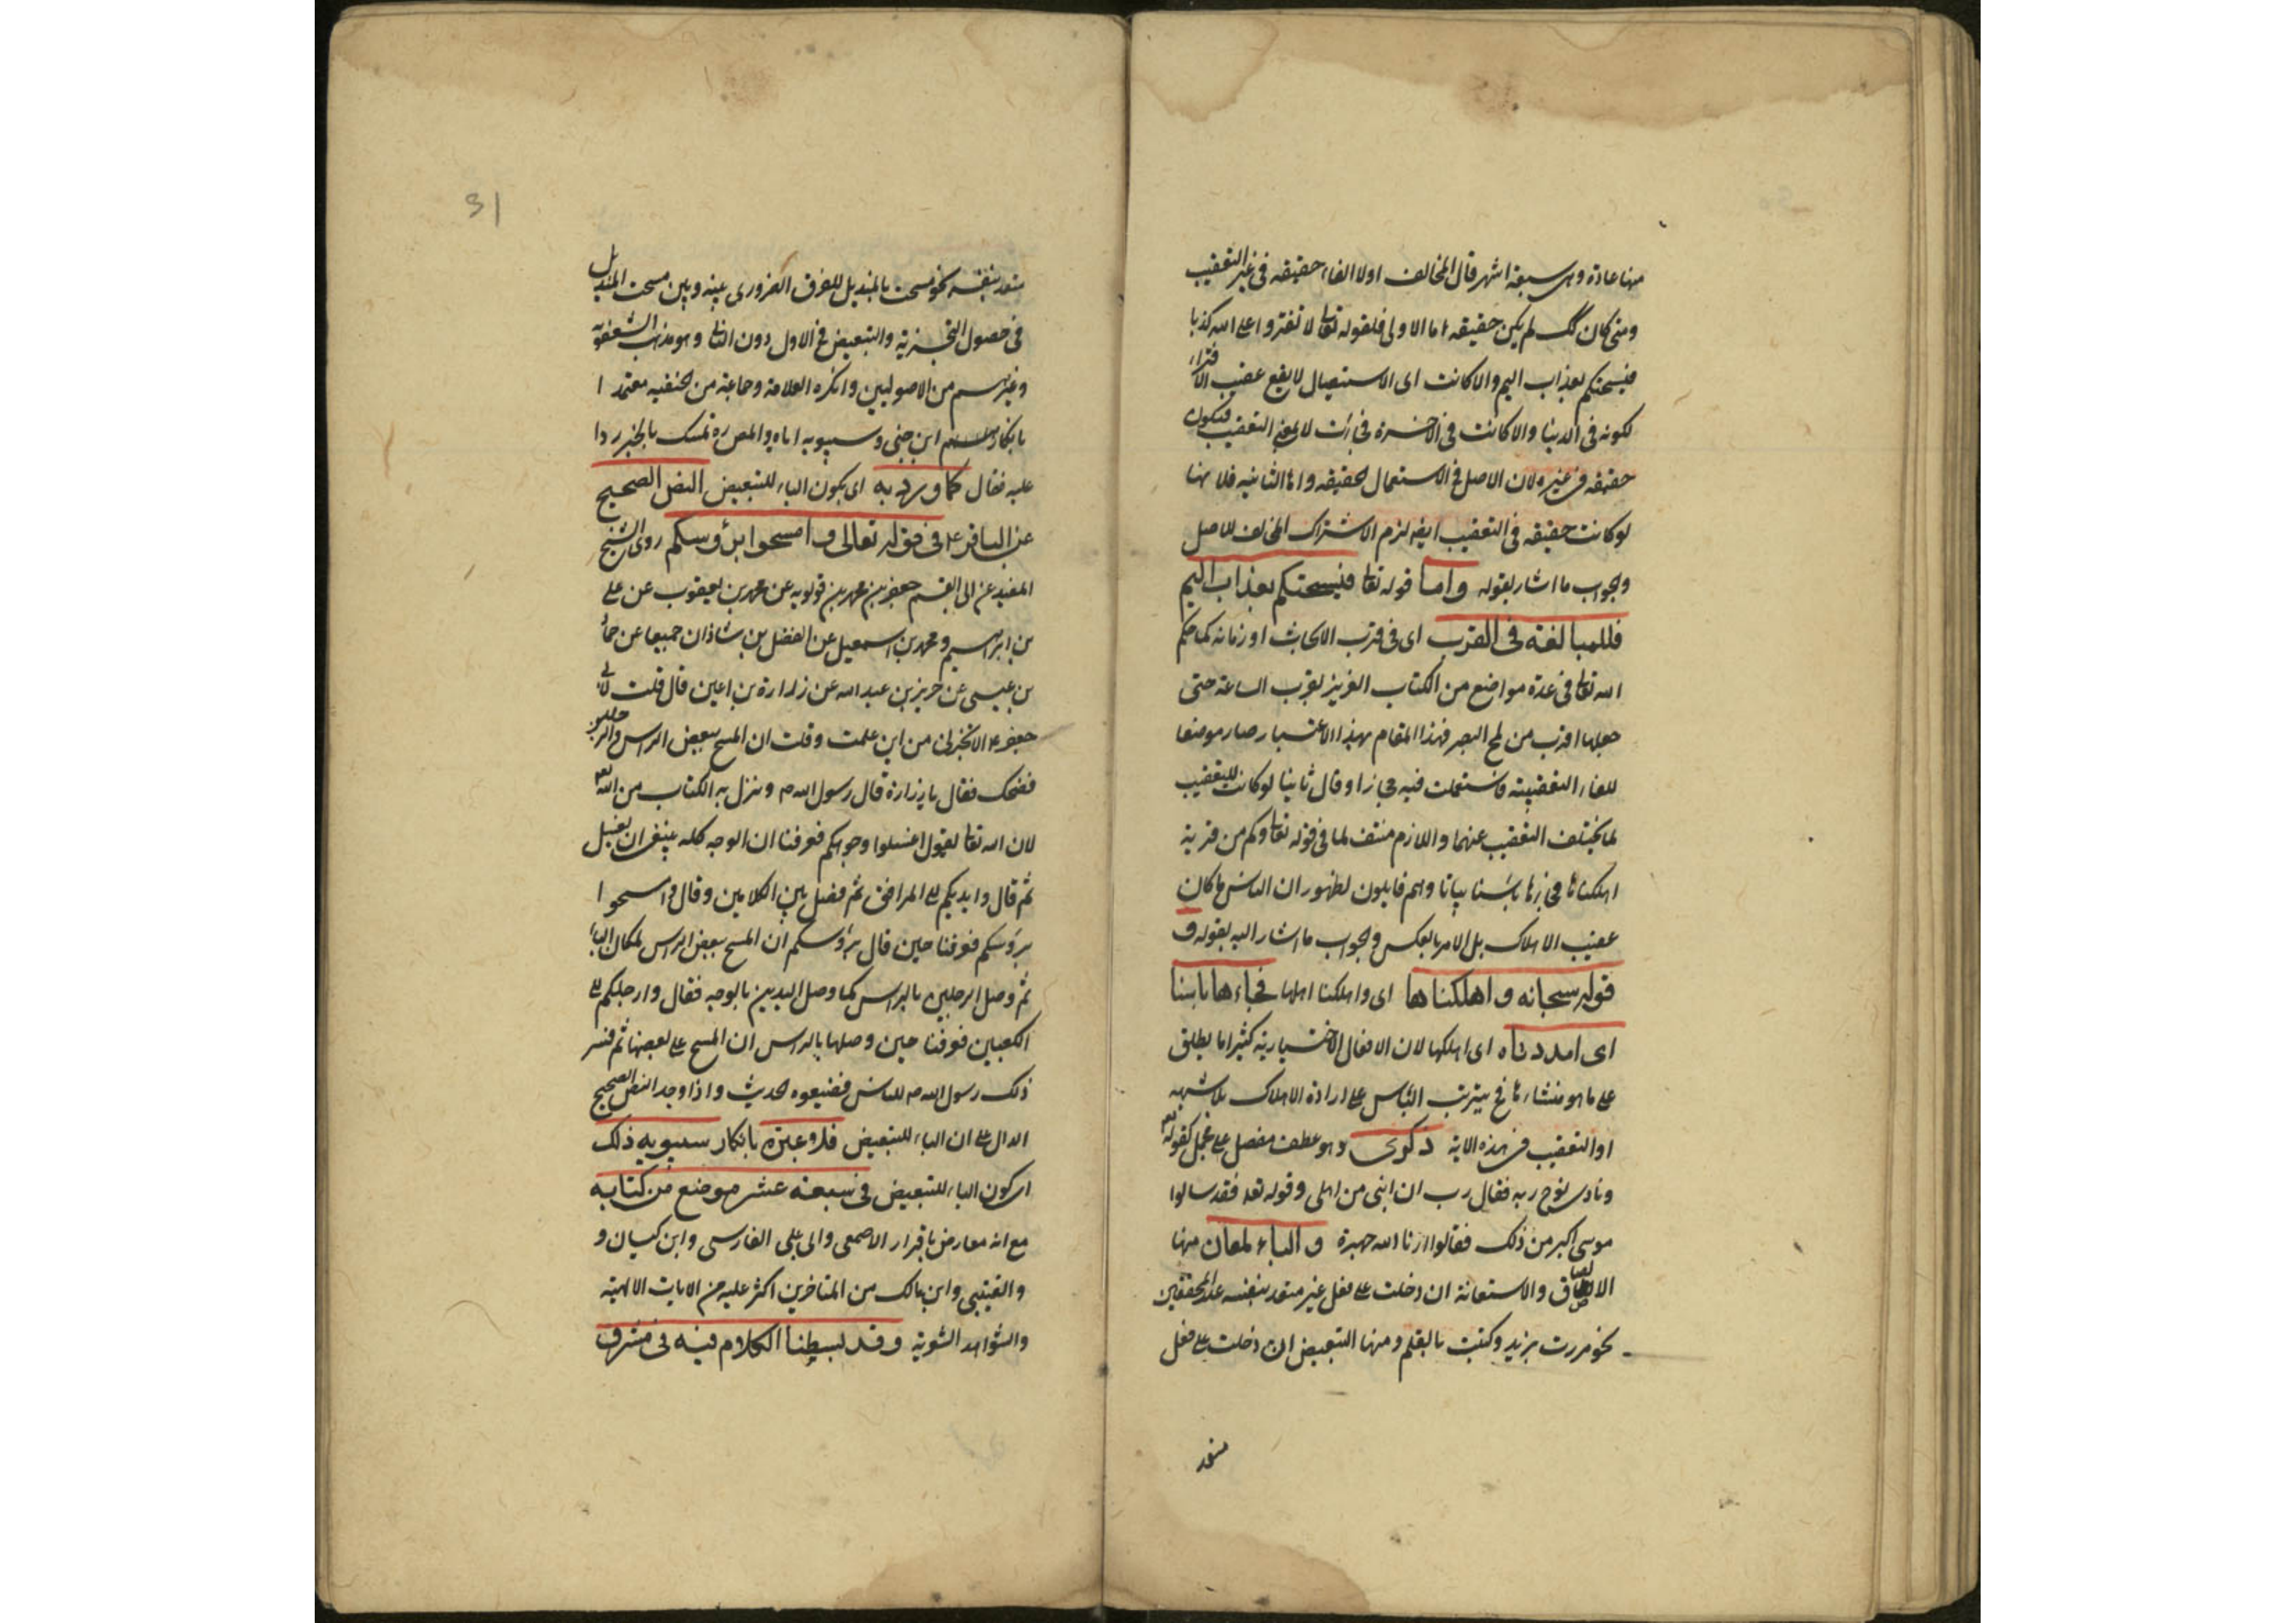 منها عادة وهى سبعة اشهر قال المخالف اولا الفاء حقيقه فى غير التعقيب
ومتى كان كك لم يكن حقيقه اما الاولى فلقوله تعالى لا تفتروا على الله كذبا
فيسحتكم بعذاب اليم والا كانت اى الاستيصال لا يقع عقيب الافتراء
لكونه فى الدنيا والا كانت فى الاخرة فجائت لا بمعنى التعقيب فيكون
حقيقه فى غيره لان الاصل فى الاستعمال الحقيقه واما الثانيه فلانها
لو كانت حقيقه فى التعقيب ايضا لزم الاشتراك المخالف للاصل
والجواب ما اشار بقوله واما قوله تعالى فيسحتكم بعذاب اليم
فللمبالغة فى القرب اى فى قرب الاسحات او زمانه كما حكم
الله تعالى فى عدة مواضع من الكتاب العزيز بقرب الساعة حتى
جعلها اقرب من لمح البصر فهذا المقام بهذا الاعتبار صار موضعا
للفاء التعقيبية فاستعملت فيه مجازا وقال ثانيا لو كانت للتعقيب
لما يختلف التعقيب عنها واللازم منتف لما فى قوله تعالى وكم من قرية
اهلكناها فجاءها باسنا بياتا وهم قايلون لظهور ان الباس ما كان
عقيب الاهلاك بل الامر بالعكس والجواب ما اشار اليه بقوله و
قوله سبحانه و اهلكناها اى واهلكنا اهلها فجاءها باسنا
اى اردناه اى اهلكها لان الافعال الاختيارية كثيرا ما يطلق
على ما هو منشاءها فح يترتب الباس على ارادة الاهلاك بلا شبهه
او التعقيب فى هذه الاية ذكرى وهو عطف مفصل على مجمل كقوله تع
ونادى نوح ربه فقال رب ان ابنى من اهلى وقوله تعه فقد سالوا
موسى اكبر من ذلك فقالوا ارنا الله جهرة و الباء لمعان منها
الالصاق والاستعانة ان دخلت على فعل غير متعد بنفسه عند المحققين
نحو مررت بزيد وكتبت بالقلم ومنها التبعيض ان دخلت على فعل
متعد
31
متعد بنفسه نحو مسحت بالمنديل للفرق الضرورى بينه وبين مسحت المنديل
فى حصول التجزية والتبعيض فى الاول دون الثانى وهو مذهب الشعفويه
وغيرهم من الاصوليين وانكره العلامة وجماعة من الحنفيه معتمدا
بانكار ابن جنى وسيبويه اياه والمص ره تمسك بالخبر ردا
عليه فقال كما ورد به اى بكون الباء للتبعيض النص الصحيح
عن الباقر ع فى قوله تعالى و امسحوا برؤسكم روى الشيخ
المفيد عن ابى القسم جعفر بن محمد بن قولويه عن محمد بن يعقوب عن على
بن ابراهيم ومحمد بن اسمعيل عن الفضل بن شاذان جميعا عن حماد
بن عيسى عن حريز بن عبد الله عن زرارة بن اعين قال قلت لابى
جعفر ع الا تخبرنى من اين علمت وقلت ان المسح ببعض الراس والرجلين
فضحك فقال يا زرارة قال رسول الله ص ونزل به الكتاب من الله تع
لان الله تعالى يقول اغسلوا وجوهكم فعرفنا ان الوجه كله ينبغى ان يغسل
ثم قال وايديكم الى المرافق ثم فصل بين الكلامين وقال وامسحوا
برؤسكم فعرفنا حين قال برؤسكم ان المسح ببعض الراس لمكان الباء
ثم وصل الرجلين بالراس كما وصل اليدين بالوجه فقال وارجلكم الى
الكعبين فعرفنا حين وصلها بالراس ان المسح على بعضها ثم فسر
ذلك رسول الله ص للناس فضيعوه الحديث واذا وجد النص الصحيح
الدال على ان الباء للتبعيض فلا عبرة بانكار سيبويه ذلك
اى كون الباء للتبعيض فى سبعة عشر موضع من كتابه
مع انه معارض باقرار الاصمعى وابى على الفارسى وابن كيسان و
والقتيبى وابن مالك من المتاخرين اكثر عليه من الايات الالهية
والشواهد الشعرية وقد بسطنا الكلام فيه فى مشرق